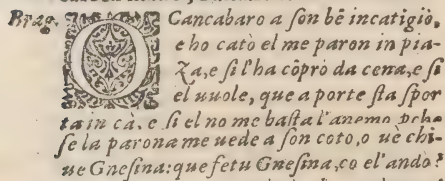 Brag. O Cancabaro a son bē incatigiò,
e ho catò el me paron in pia-
Za, e si l'ha cōprò da cena, e si
el uuole, que a porte sta spor
ta in cà, e si el no me basta l'anemo, pche
se la parona me uede a son coto, o uè chi-
ue Gnesina: que fetu Gnesina, co el' andò?